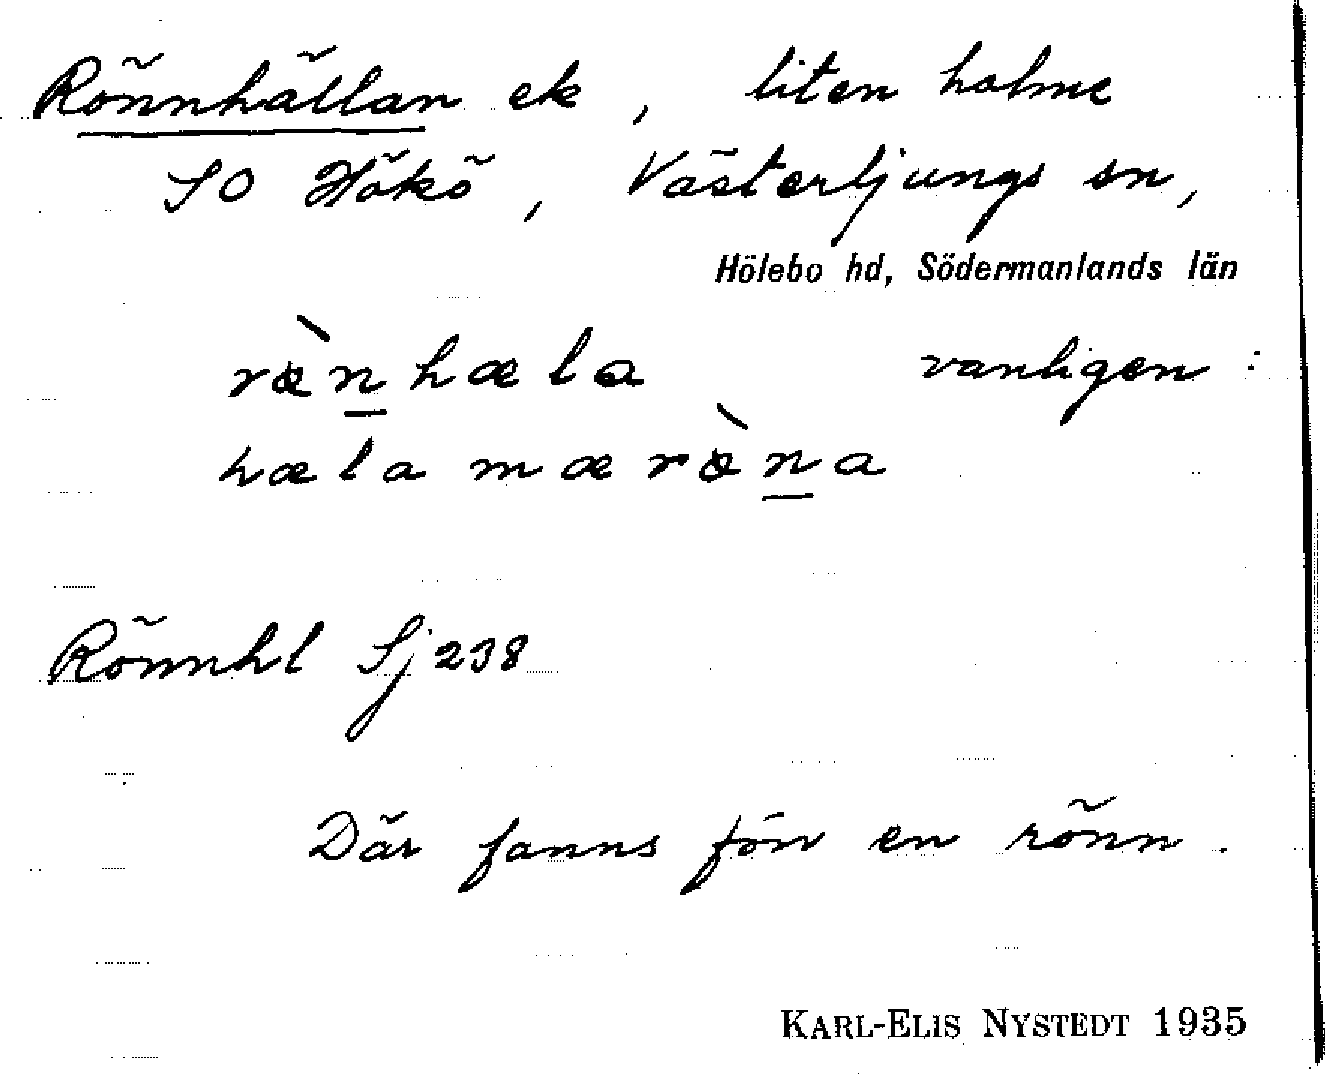 Rönnhällan ek , liten holme
SO Hökö , Västerljungs sn,
Hölebo hd, Södermanlands län
rœ̀n̲hæla vanligen :
hæla mærœ̀n̲a
Rönnhl Sj 238
Där fanns förr en rönn .
KARL-ELIS NYSTEDT 1935